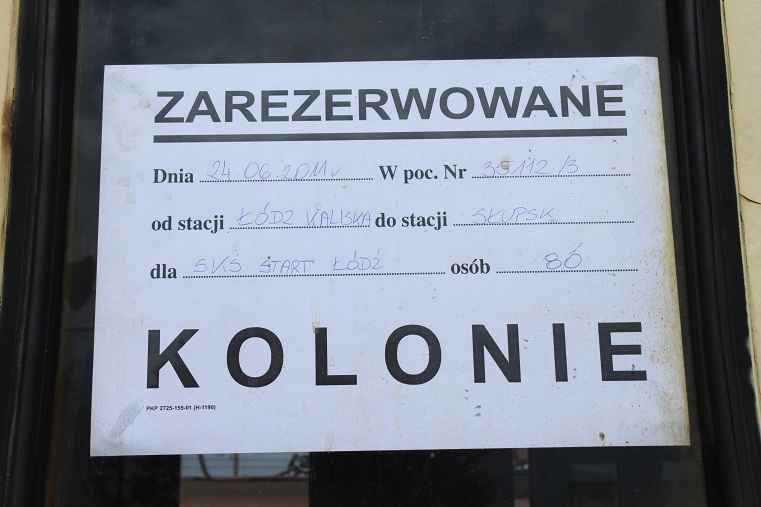 ZAREZERWOWANE
Dnia 24.06.2011r W poc. Nr 35112/3
od stacji ŁÓDŹ KALISKA do stacji SŁUPSK
dla SKS START ŁÓDŹ osób 80
KOLONIE
PKP 2725-155-01 (H-1190)